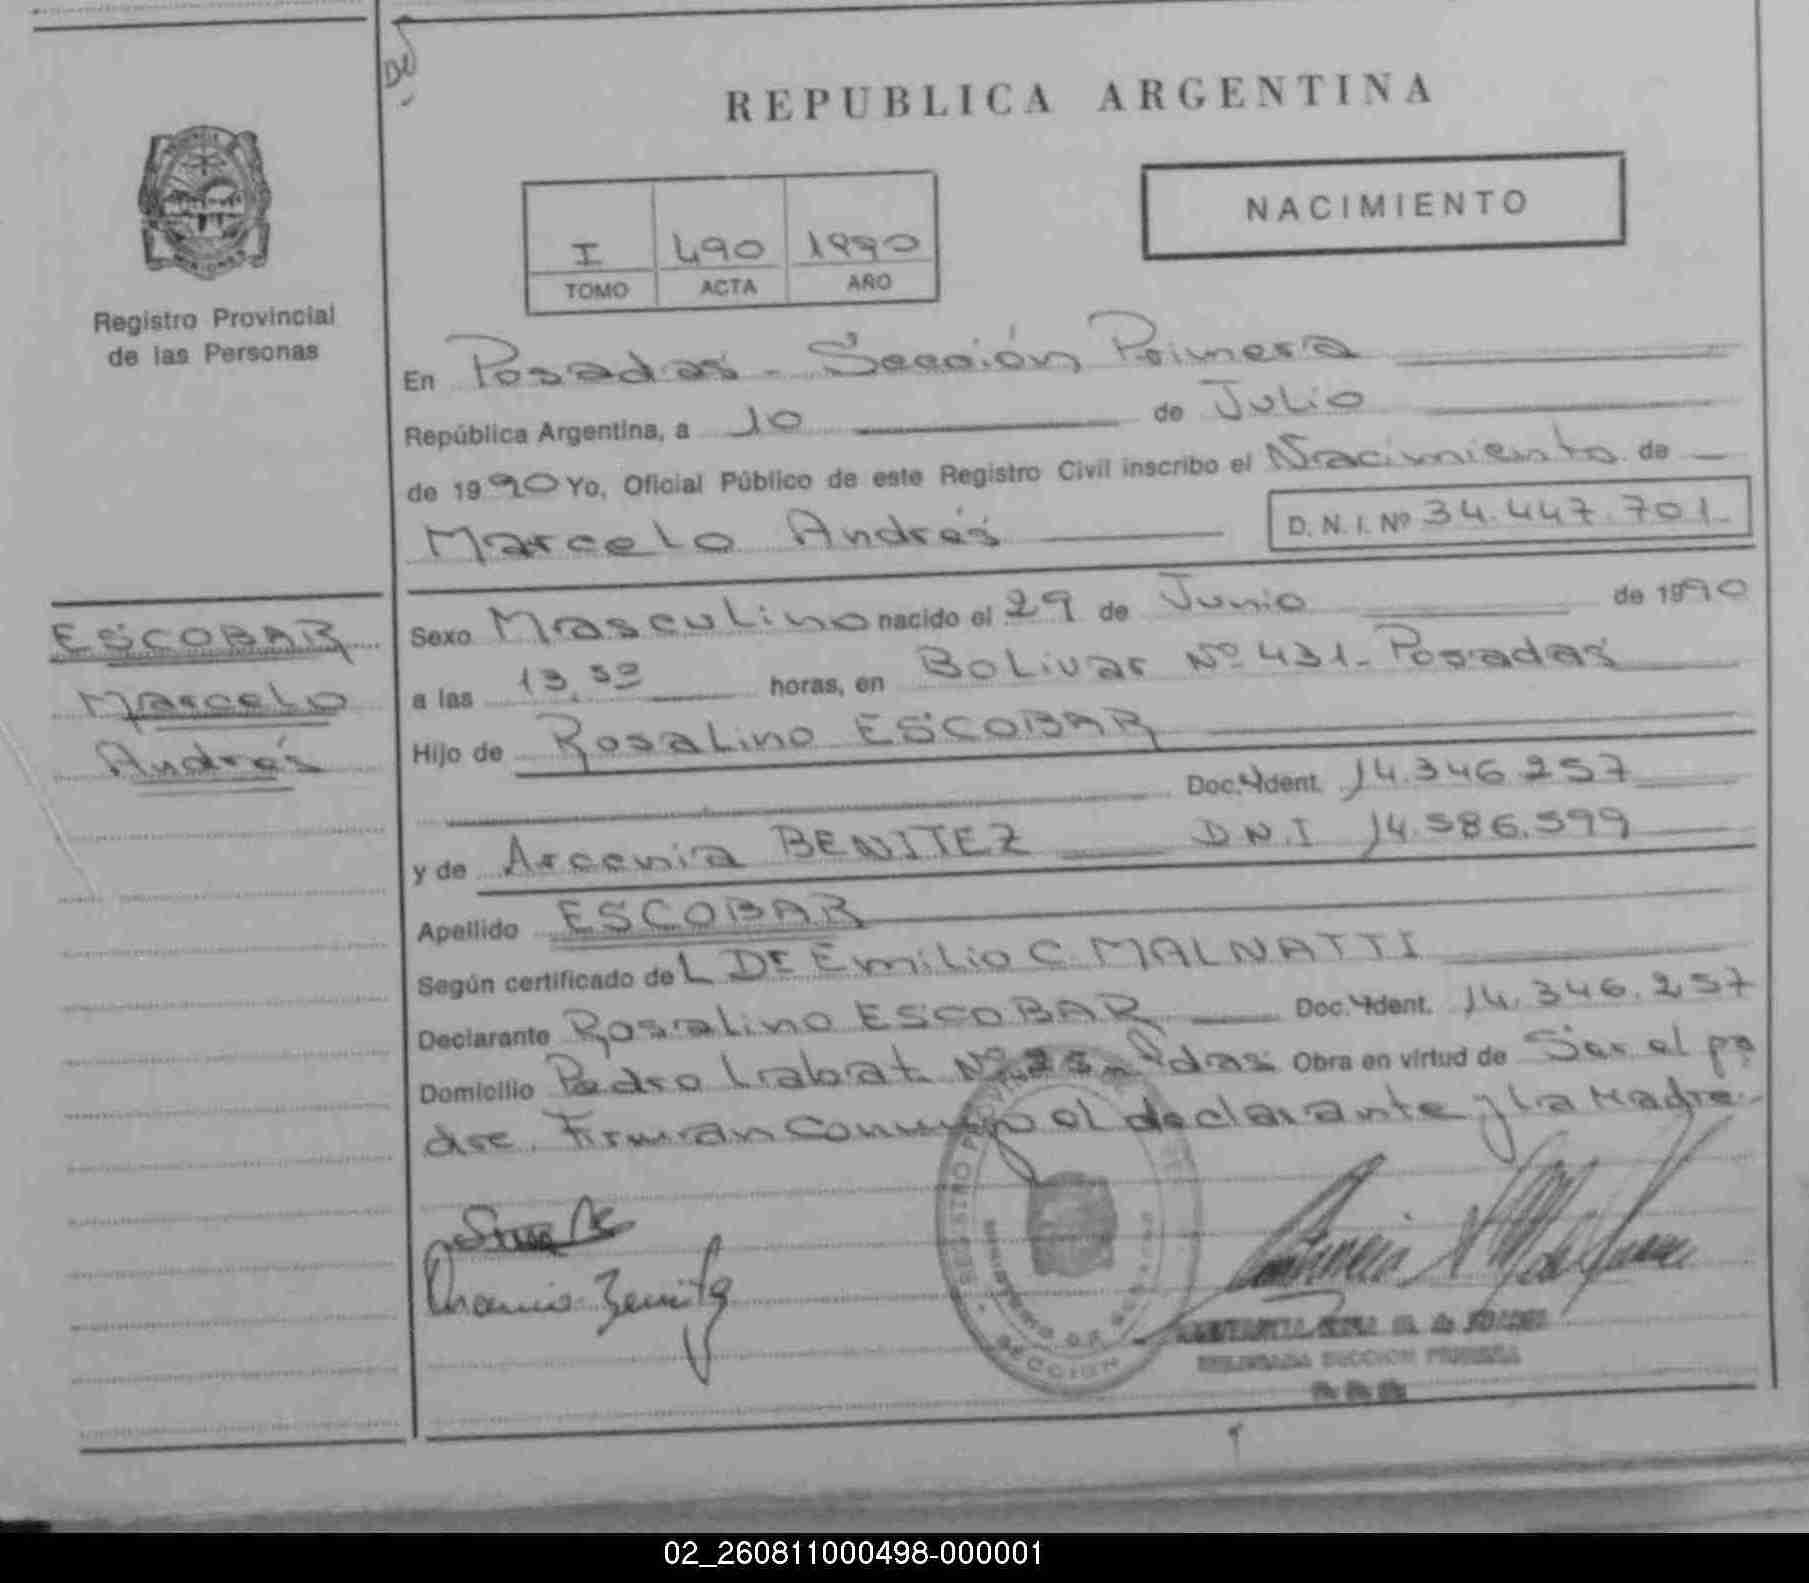 REPUBLICA ARGENTINA
NACIMIENTO
I 490 1990
TOMO ACTA AÑO
Registro Provincial
de las Personas
En Posadas - Sección Primera
República Argentina, a 10 de Julio
de 1990 Yo, Oficial Público de este Registro Civil inscribo el Nacimiento de
Marcelo Andrés D.N.I. Nº 34.447.701.
ESCOBAR
Marcelo
Andrés
Sexo Masculino nacido el 29 de Junio de 1990
a las 13, horas, en Bolivar Nº 431 - Posadas
Hijo de Rosalino ESCOBAR
Doc. Ident. 14.346.257
y de Arcenia BENITEZ D.N.I 14.586.599
Apellido ESCOBAR
Según certificado del Dr Emilio C. MALNATTI
Declarante Rosalino ESCOBAR Doc. Ident. 14.346.257
Domicilio Pedro Labat Nº Pdas Obra en virtud de Ser el pa
dre. Firman conmigo el declarante y la Madre.-
REGISTRO
MINISTERIO DE GOBIERNO
SECCION
DELEGADA SECCION PRIMERA
02_260811000498-000001